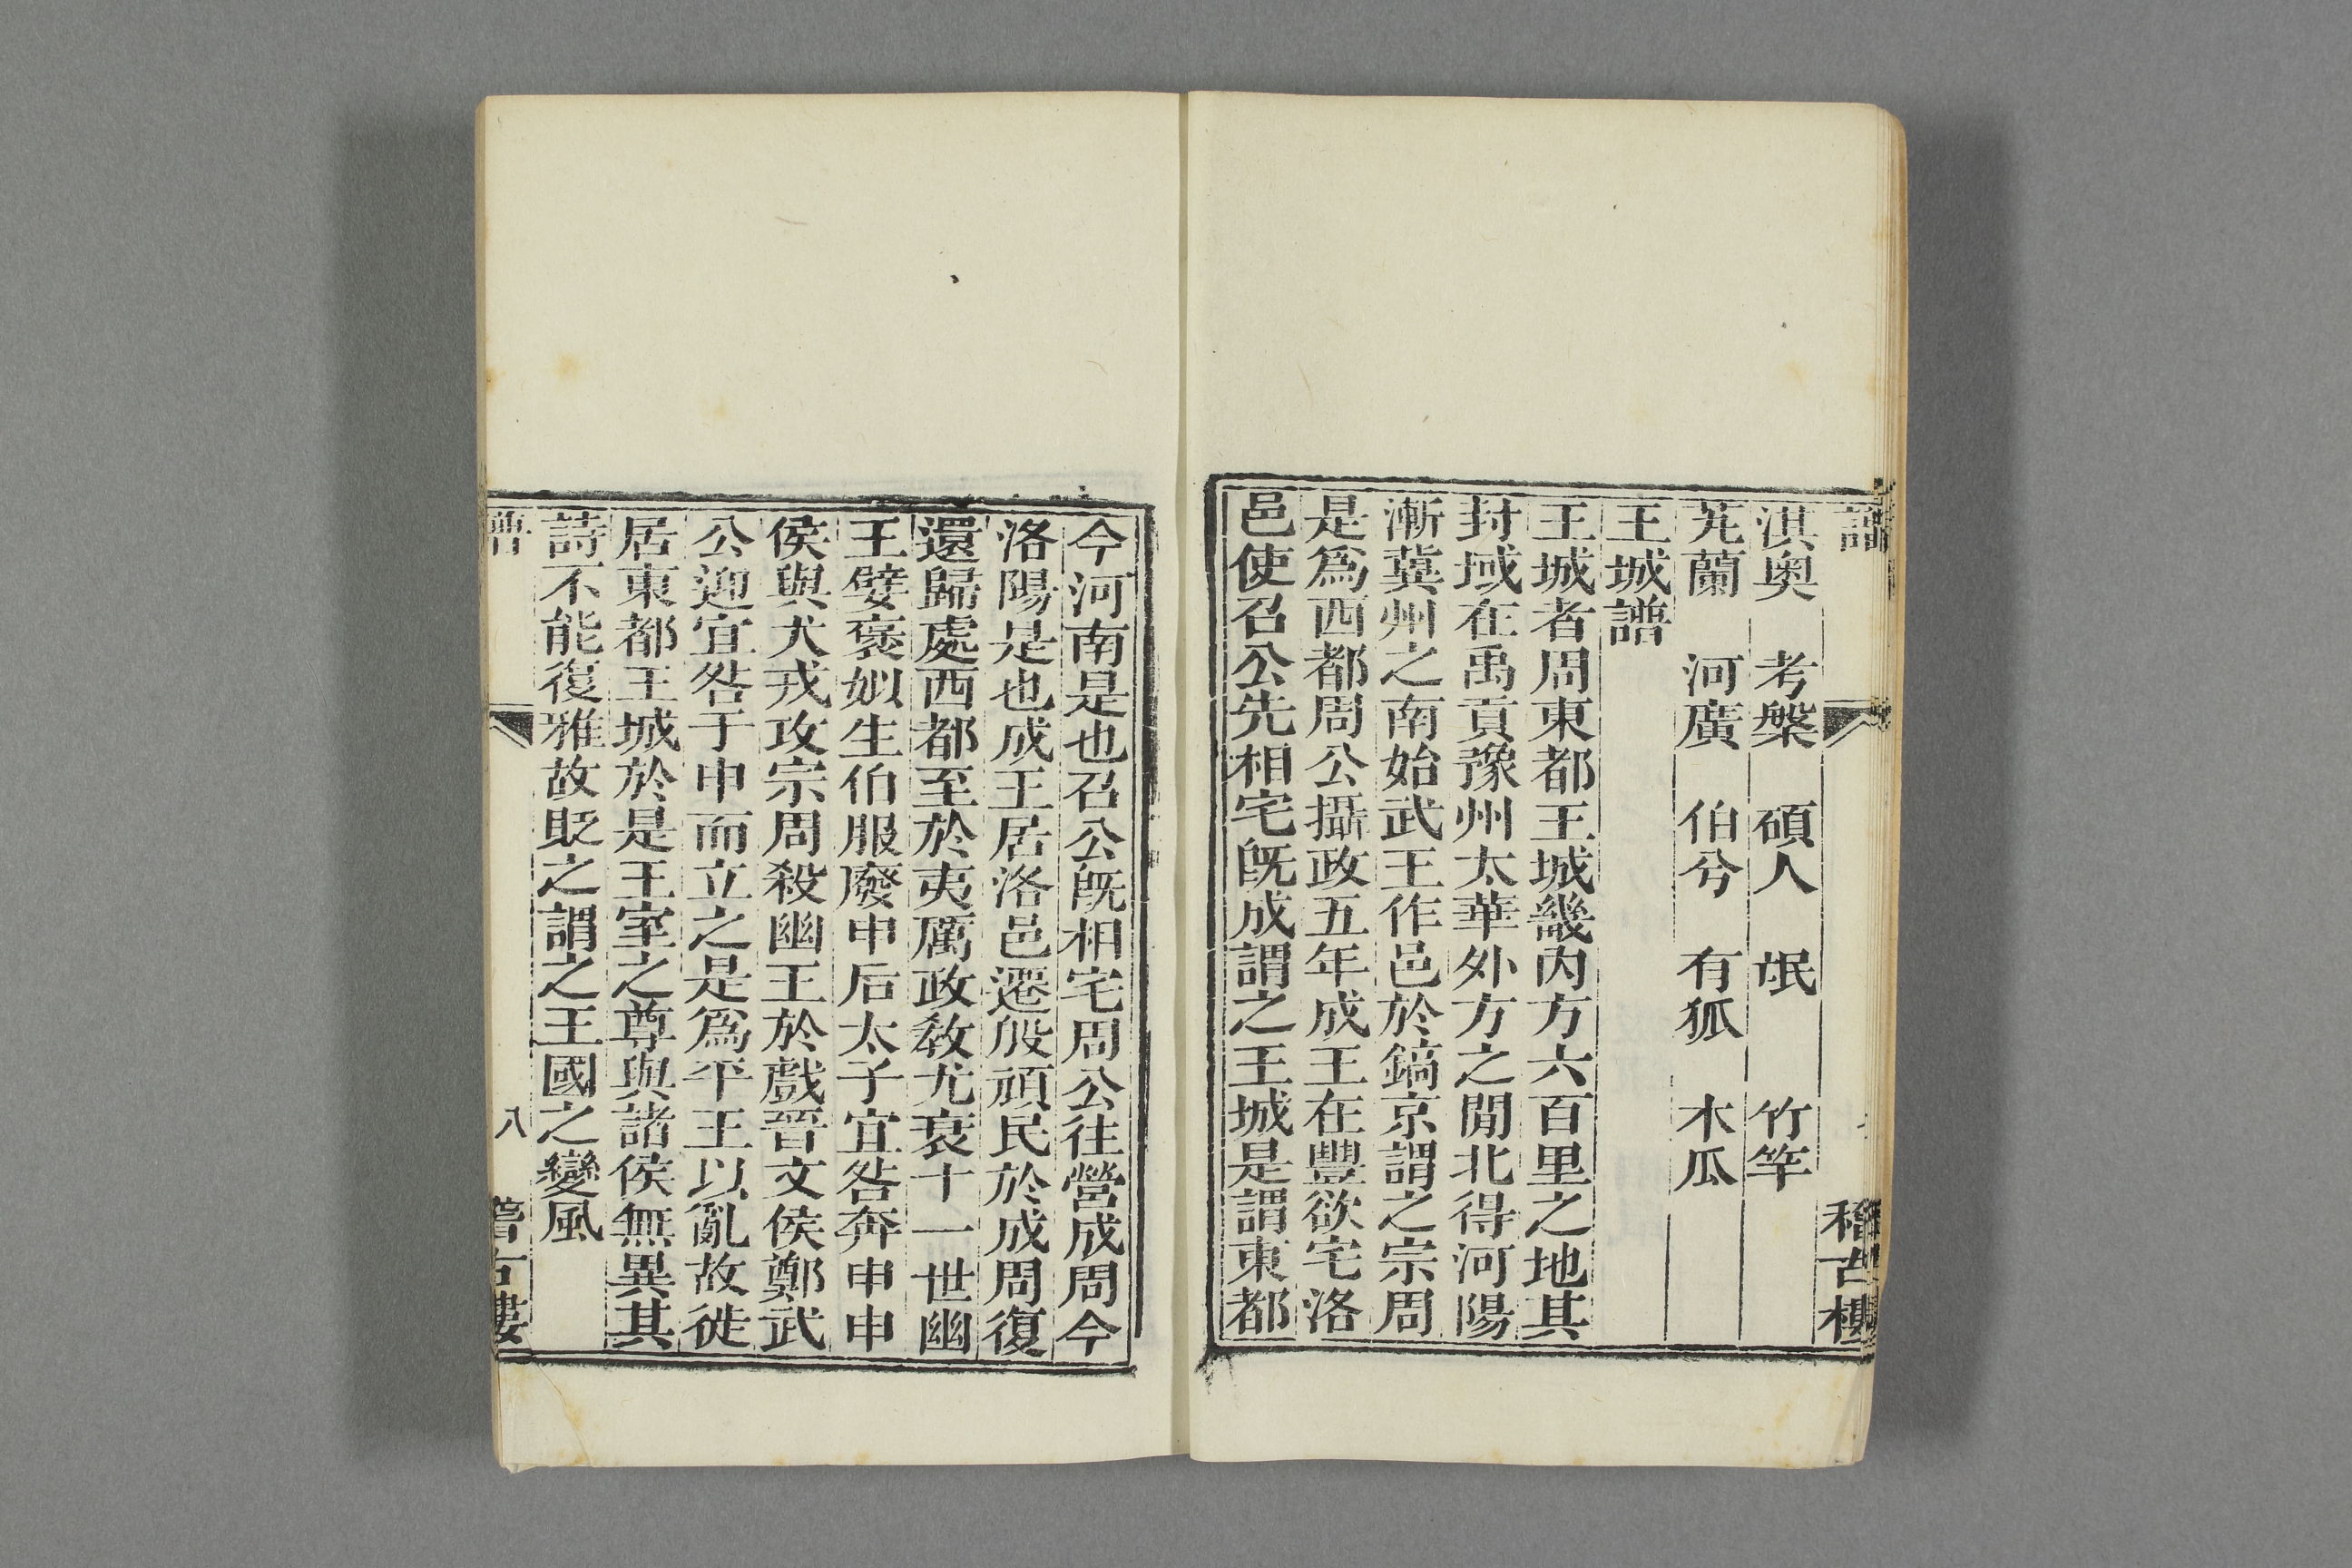 譜
稽古樓
淇奧　考槃　碩人　氓　竹竿
芄蘭　河廣　伯兮　有狐　木瓜
王城譜
王城者周東都王城畿內方六百里之地其
封域在禹貢豫州太華外方之閒北得河陽
漸冀州之南始武王作邑於鎬京謂之宗周
是爲西都周公攝政五年成王在豐欲宅洛
邑使召公先相宅旣成謂之王城是謂東都
今河南是也召公旣相宅周公往營成周今
洛陽是也成王居洛邑遷殷頑民於成周復
還歸處西都至於夷厲政敎尤衰十一世幽
王嬖褒姒生伯服廢申后太子宜咎奔申申
侯與犬戎攻宗周殺幽王於戲晉文侯鄭武
公迎宜咎于申而立之是爲平王以亂故徙
居東都王城於是王室之尊與諸侯無異其
詩不能復雅故貶之謂之王國之變風
譜
八
稽古樓